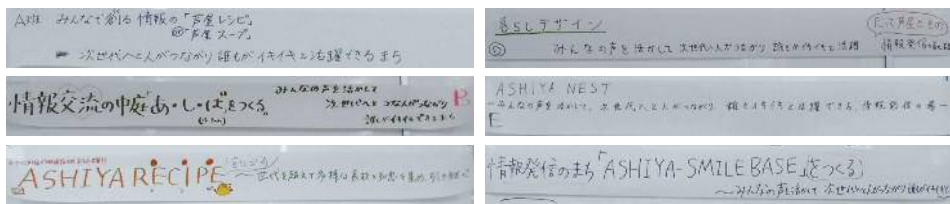 A班 みんなで創る 情報の「芦屋レシピ」
芦屋スープ」
次世代へと人がつながり 誰もがイキイキと活躍できるまち
情報交流の中庭「あ・し・ば」をつくる
みんなの声を活かして
次世代へと 人がつながり
誰もがイキイキできるまち
B
ASHIYA RECIPE
〜世代を超えて多様な
暮らしデザイン
みんなの声を活かして 次世代へ人がつながり 誰もがイキイキと活躍
情報発信
ASHIYA NEST
みんなの声を活かして、次世代へと人がつながり、誰もイキイキと活躍できる、情報発信の場
E
情報発信のまち「ASHIYA-SMILE BASE」をつくる
〜みんなの声を活かして 次世代へと人がつながり